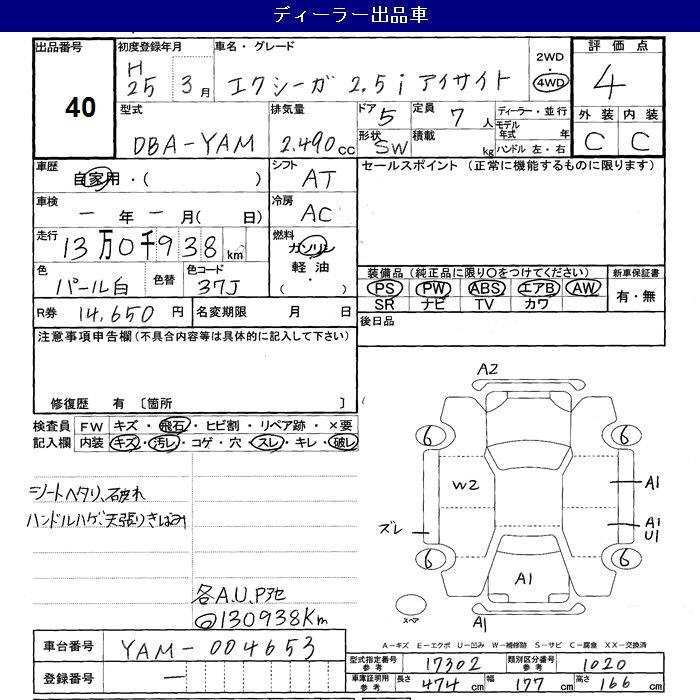 ディーラー出品車
出品番号
40
初度登録年月
H
25 3月
車名・グレード
エクシーガ 2.5i アイサイト
2WD
・
4WD
評価点
4
外装 内装
C C
型式
DBA-YAM
排気量
2.490cc
ドア
5
形状
SW
定員
7人
積載
kg
ディーラー・並行
モデル年式 年
ハンドル 左・右
車歴
自家用・( )
シフト
AT
セールスポイント(正常に機能するものに限ります)
車検
一年一月( 日)
冷房
AC
走行
13万0千938km
燃料
ガソリン
軽油
( ・ )
色
パール白
色替
色コード
37J
装備品(純正品に限り○をつけてください)
PS PW ABS エアB AW
SR ナビ TV カワ
新車保証書
有・無
R券 14,650円
名変期限 月 日
後日品
注意事項申告欄(不具合内容等は具体的に記入して下さい)
修復歴 有 〔箇所 〕
検査員記入欄
FW キズ・飛石・ヒビ割・リペア跡・×要
内装 キズ・汚レ・コゲ・穴・スレ・キレ・破レ
シートヘタリ、破れ
ハンドルハゲ、天張りきばみ
各A.U.P他
130938Km
A2
6 6
W2
A1
ズレ
A1
U1
6 6
A1
スペア
A1
A-キズ E-エクボ U-凹み W-補修跡 S-サビ C-腐食 XX-交換済
車台番号 YAM-004653
登録番号 一
型式指定番号 参考 17302
類別区分番号 参考 1020
車庫証明用 参考 長さ 474cm 幅 177cm 高さ 166cm